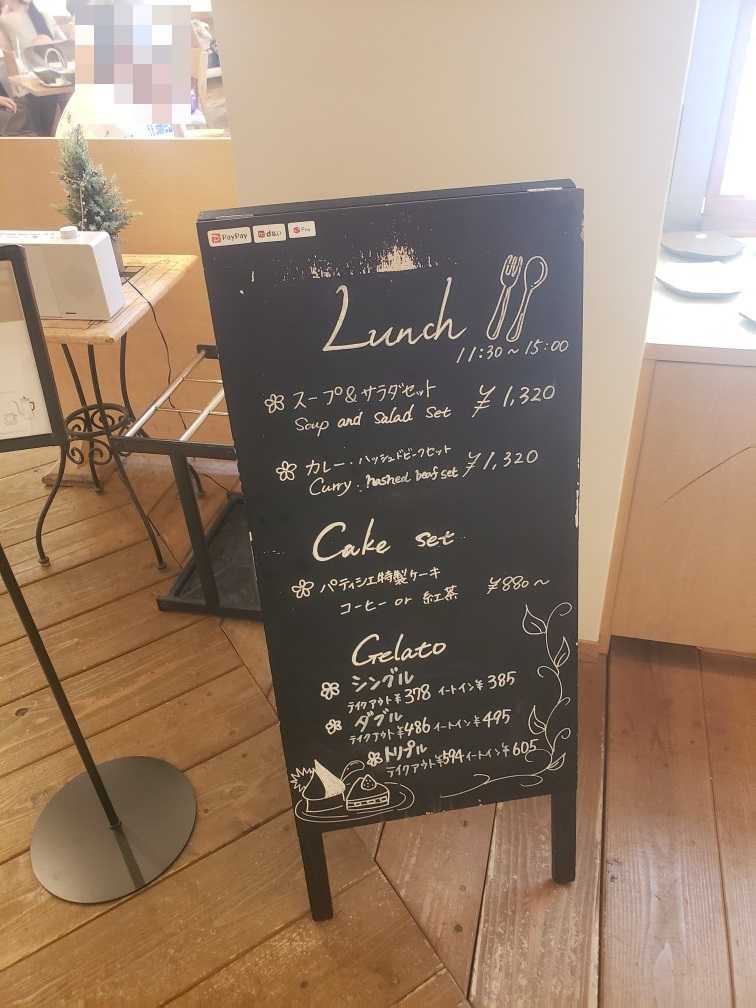 PayPay
d払い
Pay
Lunch
11:30～15:00
スープ&サラダセット ¥1,320
Soup and Salad set
カレー・ハッシュドビーフセット ¥1,320
Curry. hashed beef set
Cake set
パティシエ特製ケーキ
コーヒー or 紅茶 ¥880～
Gelato
シングル
テイクアウト¥378 イートイン¥385
ダブル
テイクアウト¥486 イートイン¥495
トリプル
テイクアウト¥594 イートイン¥605